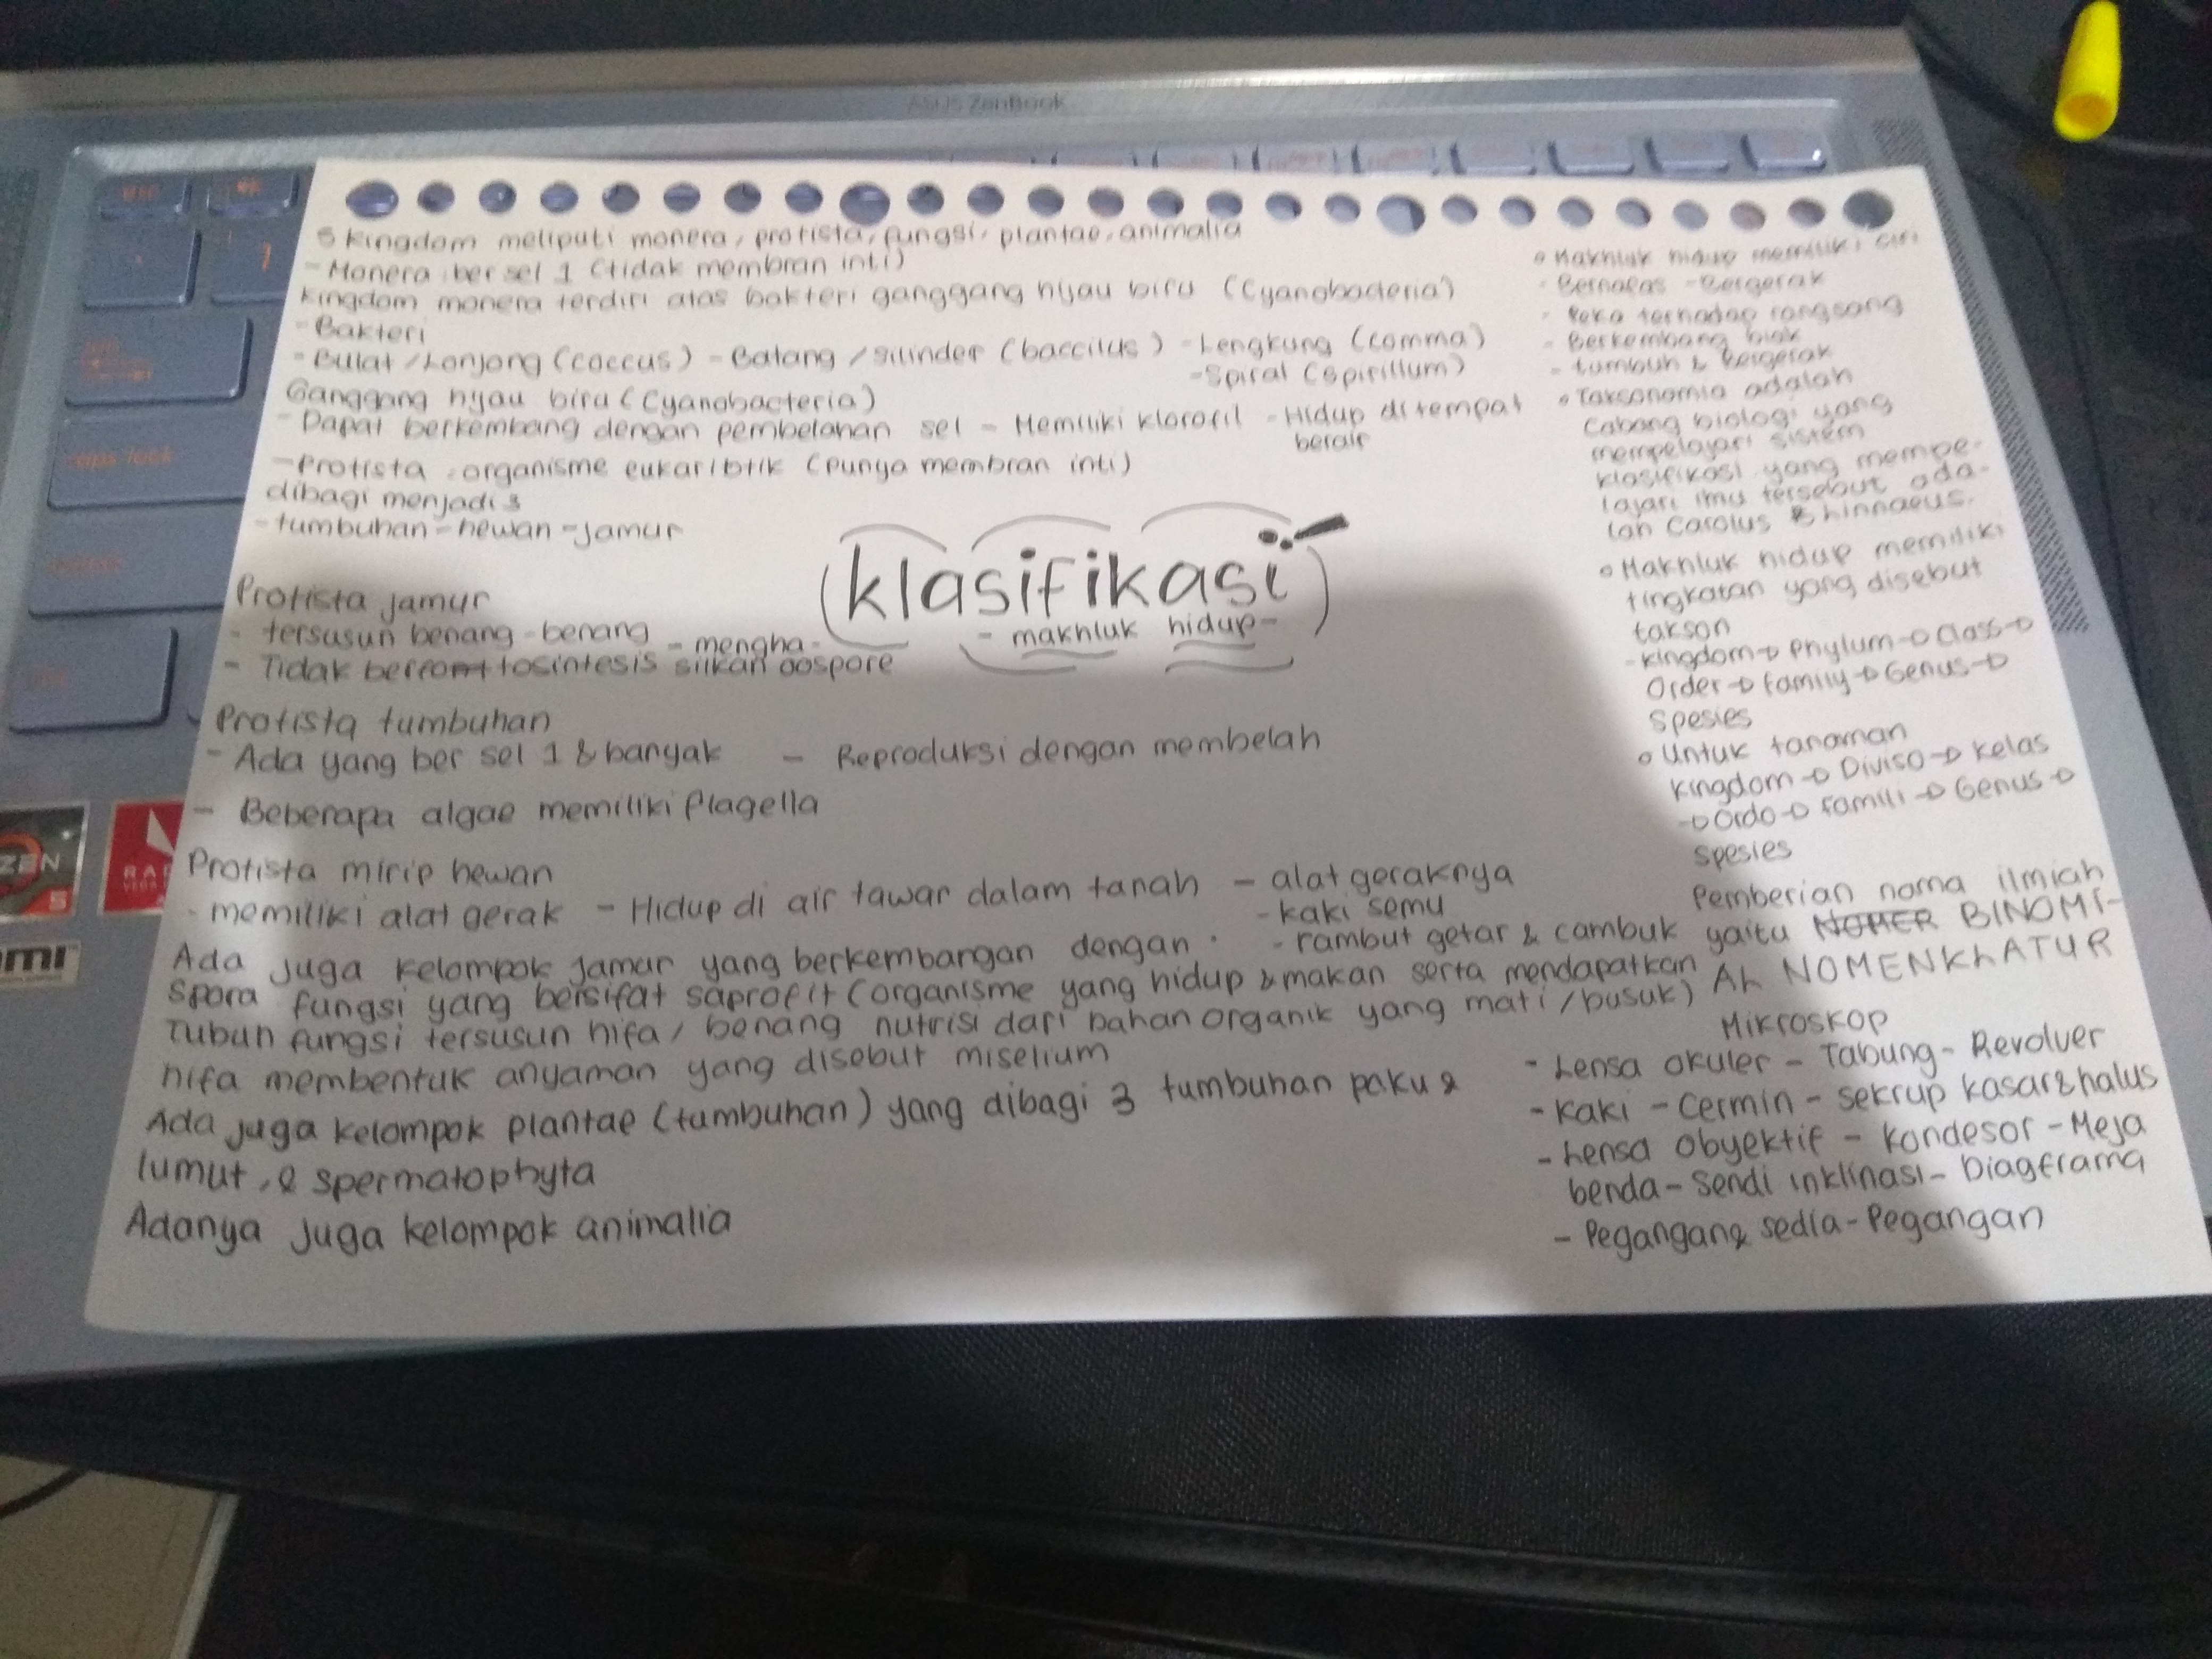 ASUS ZenBook
5 kingdom meliputi monera, protista, fungsi, plantae, animalia
- Monera : ber sel 1 (tidak membran inti)
kingdom monera terdiri atas bakteri ganggang hijau biru (Cyanobacteria)
- Bakteri
- Bulat / Lonjong (coccus) - Batang / silinder (baccilus) - Lengkung (comma)
- Spiral (spirillum)
Ganggang hijau biru (Cyanobacteria)
- Dapat berkembang dengan pembelahan sel - Memiliki klorofil - Hidup ditempat
berair
- Protista : organisme eukariotik (punya membran inti)
dibagi menjadi 3
- tumbuhan - hewan - jamur
klasifikasi
- makhluk hidup -
Protista jamur
- tersusun benang - benang - mengha-
- Tidak berfotosintesis silkan oospore
Protista tumbuhan
- Ada yang ber sel 1 & banyak - Reproduksi dengan membelah
- Beberapa algae memiliki flagella
Protista mirip hewan
- memiliki alat gerak - Hidup di air tawar dalam tanah - alat geraknya
- kaki semu
- rambut getar & cambuk
Ada juga kelompok jamur yang berkembangan dengan
spora fungsi yang bersifat saprofit (organisme yang hidup & makan serta mendapatkan
Tubuh fungsi tersusun hifa / benang nutrisi dari bahan organik yang mati / busuk)
hifa membentuk anyaman yang disebut miselium
Ada juga kelompok plantae (tumbuhan) yang dibagi 3 tumbuhan paku &
lumut, & spermatophyta
Adanya juga kelompok animalia
Makhluk hidup memiliki ciri
- Bernafas - Bergerak
- Peka terhadap rangsang
- Berkembang biak
- tumbuh & Bergerak
Taksonomia adalah
Cabang biologi yang
mempelajari sistem
klasifikasi yang mempe-
lajari ilmu tersebut ada-
lah Carolus Linnaeus.
Makhluk hidup memiliki
tingkatan yang disebut
takson
- Kingdom → Phylum → Class →
Order → Family → Genus →
Spesies
Untuk tanaman
Kingdom → Diviso → Kelas
→ Ordo → Famili → Genus →
Spesies
Pemberian nama ilmiah
yaitu NOMER BINOMI-
AL NOMENKLATUR
Mikroskop
- Lensa okuler - Tabung - Revolver
- Kaki - Cermin - sekrup kasar & halus
- Lensa Obyektif - Kondesor - Meja
benda - Sendi inklinasi - Diagframa
- Pegangan & sedia - Pegangan